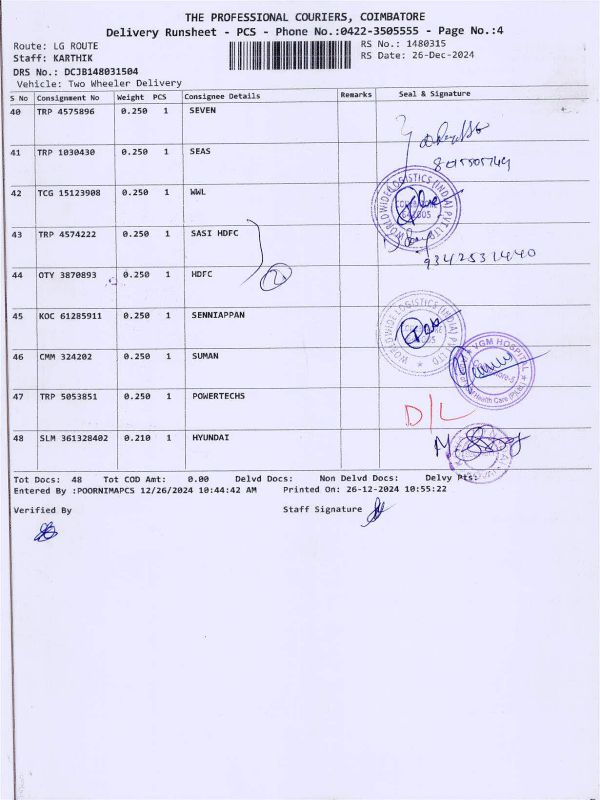 THE PROFESSIONAL COURIERS, COIMBATORE
Delivery Runsheet - PCS - Phone No.:0422-3505555 - Page No.:4
Route: LG ROUTE RS No.: 1480315
Staff: KARTHIK RS Date: 26-Dec-2024
DRS No.: DCJB148031504
Vehicle: Two Wheeler Delivery
S No Consignment No Weight PCS Consignee Details Remarks Seal & Signature
40 TRP 4575896 0.250 1 SEVEN
41 TRP 1030430 0.250 1 SEAS
42 TCG 15123908 0.250 1 WWL
WORLD WIDE LOGISTICS (INDIA) PVT LTD
43 TRP 4574222 0.250 1 SASI HDFC
9342531440
44 OTY 3870893 0.250 1 HDFC 2
45 KOC 61285911 0.250 1 SENNIAPPAN
WORLD WIDE LOGISTICS (INDIA) PVT LTD
46 CMM 324202 0.250 1 SUMAN
VGM HOSPITAL
Health Care (P) Ltd
47 TRP 5053851 0.250 1 POWERTECHS D/L
48 SLM 361328402 0.210 1 HYUNDAI
Tot Docs: 48 Tot COD Amt: 0.00 Delvd Docs: Non Delvd Docs: Delvy Pts:
Entered By :POORNIMAPCS 12/26/2024 10:44:42 AM Printed On: 26-12-2024 10:55:22
Verified By Staff Signature